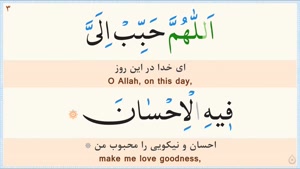 ۳
اَللّٰهُمَّ حَبِّبْ اِلَیَّ
ای خدا در این روز
O Allah, on this day,
فیهِ الْاِحْسٰانَ
احسان و نیکویی را محبوب من
make me love goodness,